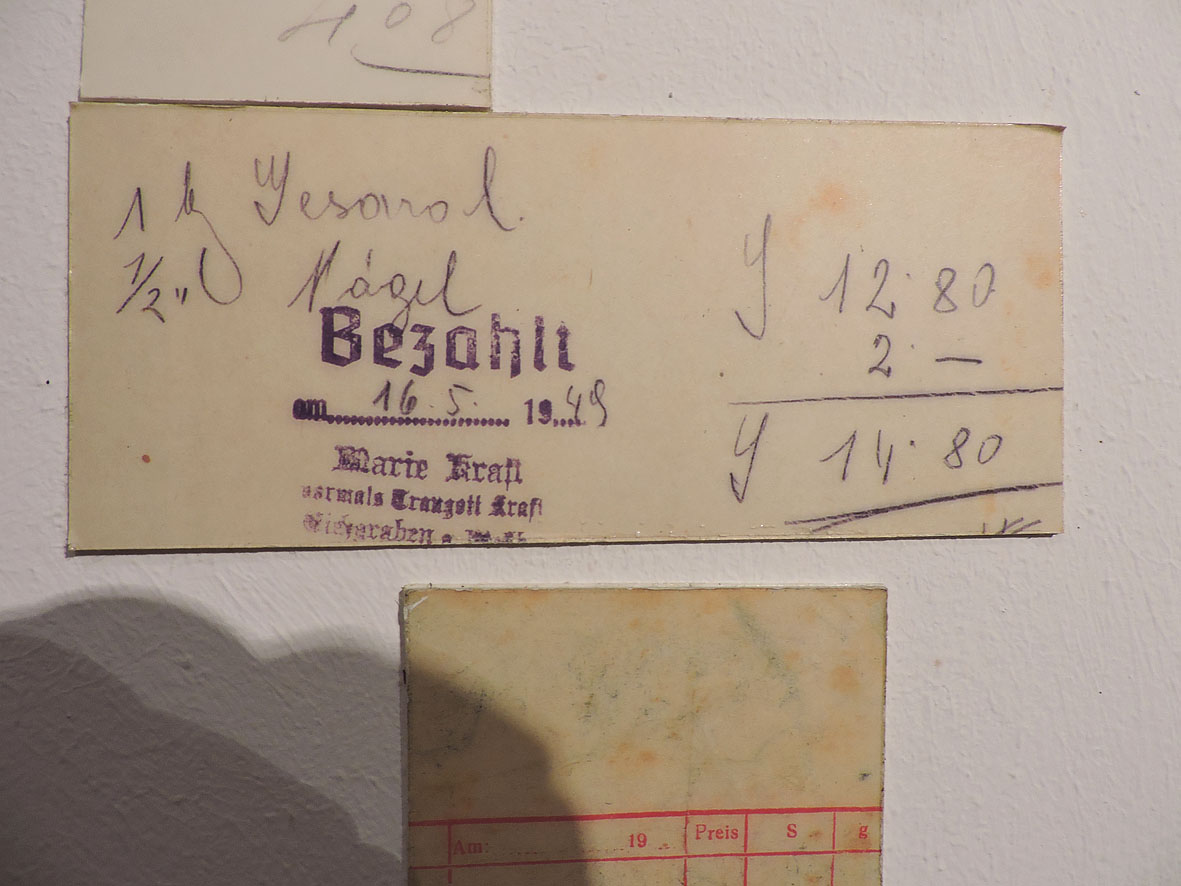 408
1 kg Gesarol. S 12·80
1/2 " Nägel 2·—
Bezahlt
am 16.5. 1949
S 14·80
Marie Kraft
vormals Traugott Kraft
Eichgraben
Am: 19 Preis S g